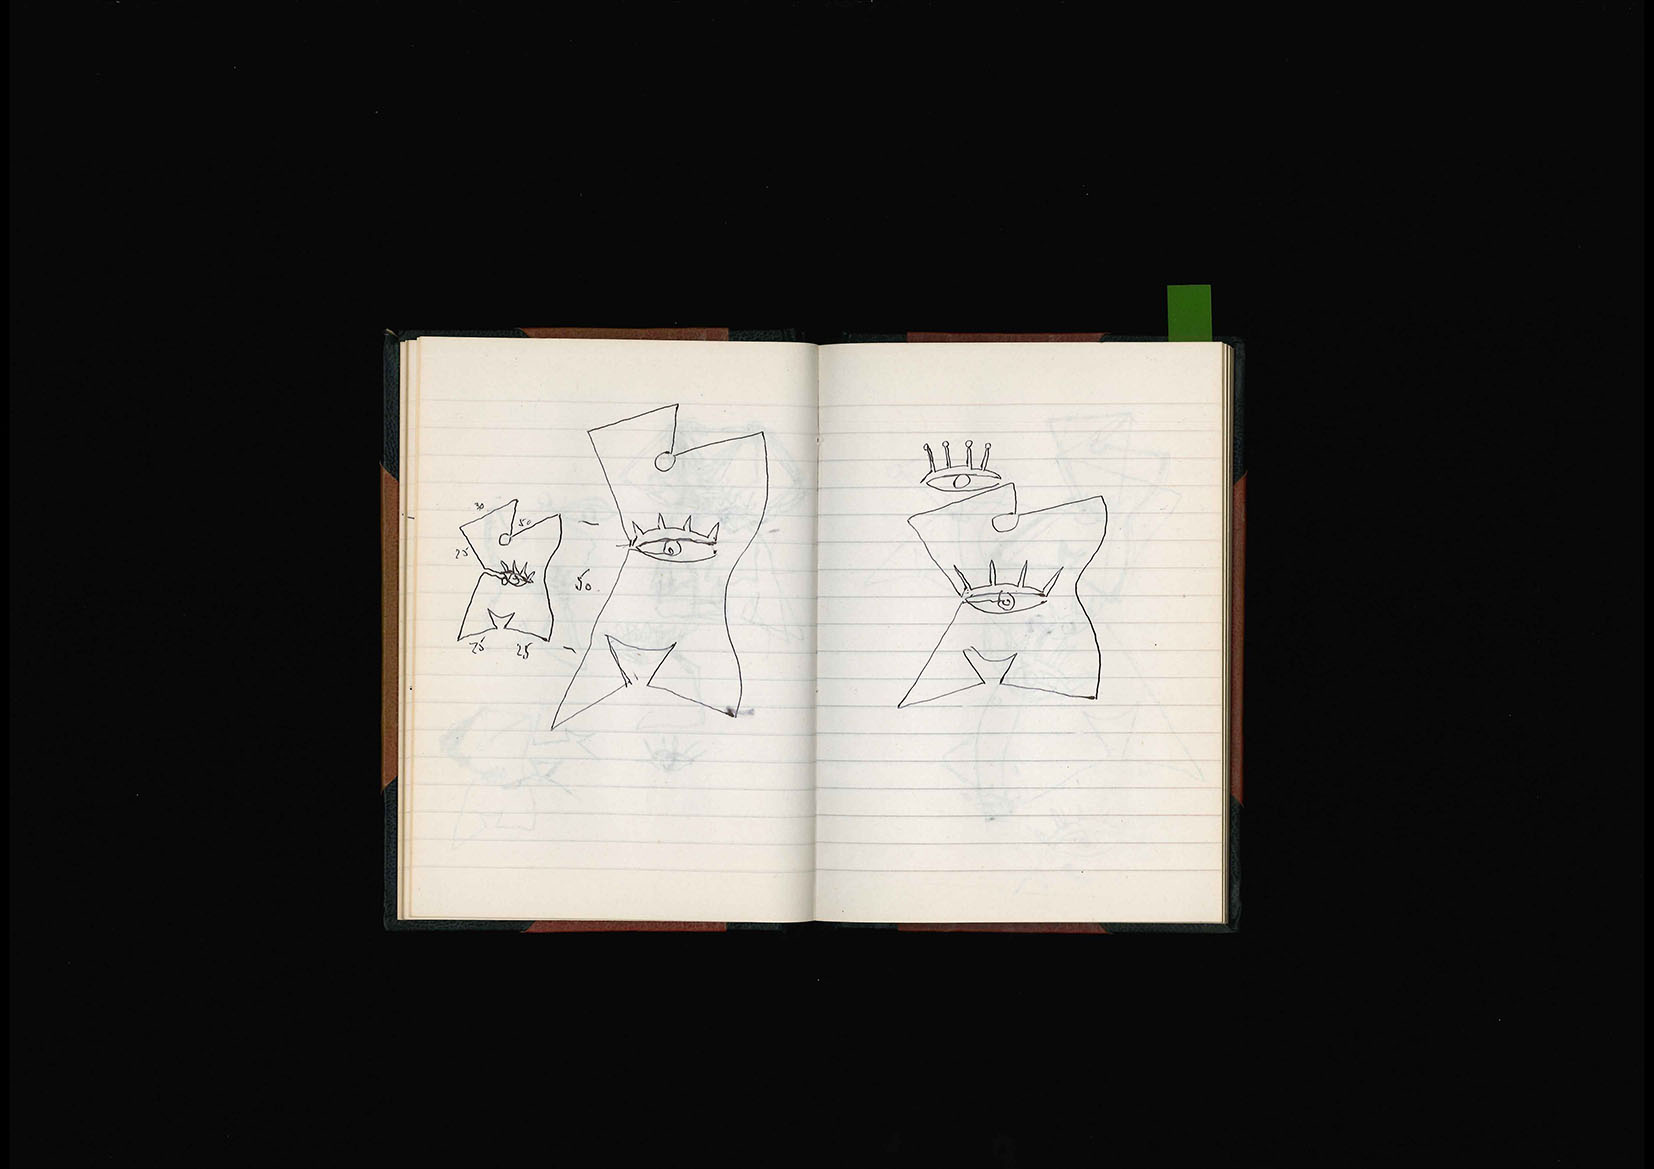 30
50
25
50
25 25